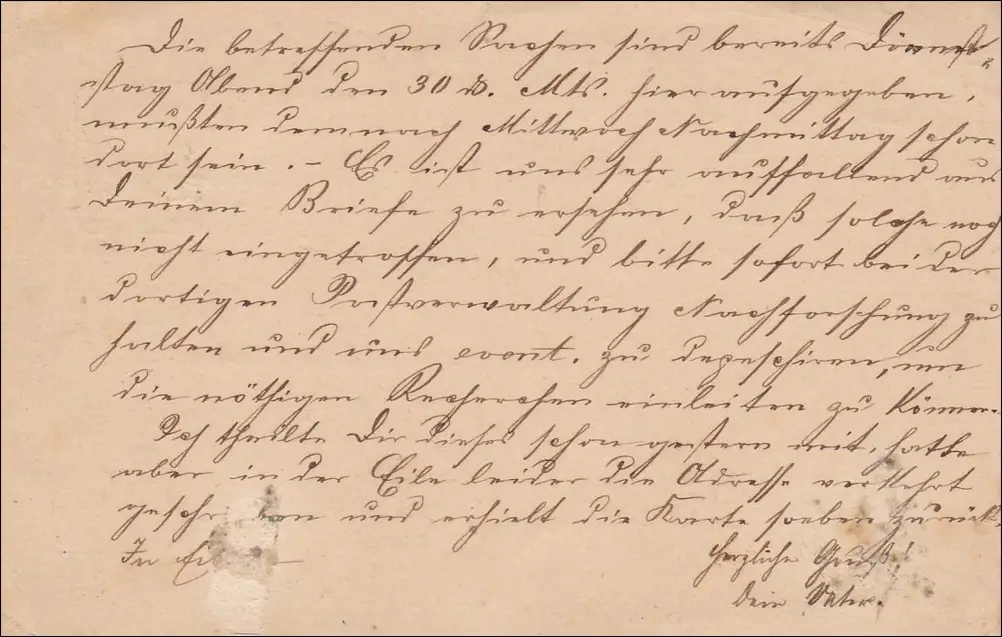 Die betreffenden Sachen sind bereits Dönnst-
tag Abend den 30 d. Mts. hier aufgegeben,
mußten demnach Mittwoch Nachmittag schon
dort sein. – Es ist uns sehr auffallend aus
Deinem Briefe zu ersehen, daß solche noch
nicht eingetroffen, und bitte sofort bei der
dortigen Postverwaltung Nachforschung zu
halten und uns event. zu depeschiren, um
die nöthigen Recherchen einleiten zu können.
Ich theilte Dir dieses schon gestern mit, hatte
aber in der Eile leider die Adresse verkehrt
und erhielt die Karte soeben zurück.
In
Herzliche Gruß!
Dein Vater.